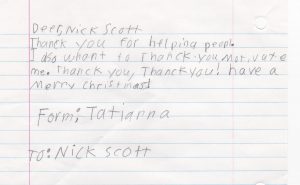 Deer, Nick Scott
Thanck you for helping peopl.
I also whant to Thanck-you Mot,vate
me. Thanck you, Thanck you! have a
Merry Christmas!
Form; Tatianna
To: Nick Scott